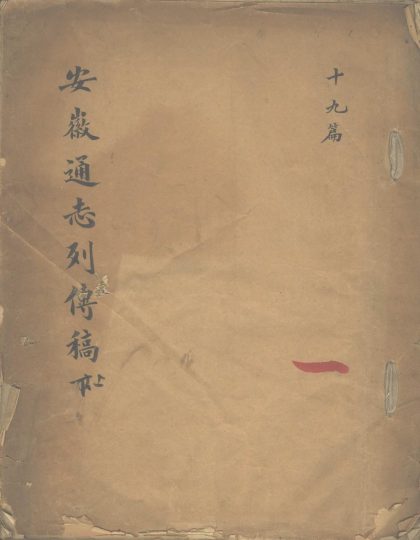 十九篇
一
安徽通志列傳稿